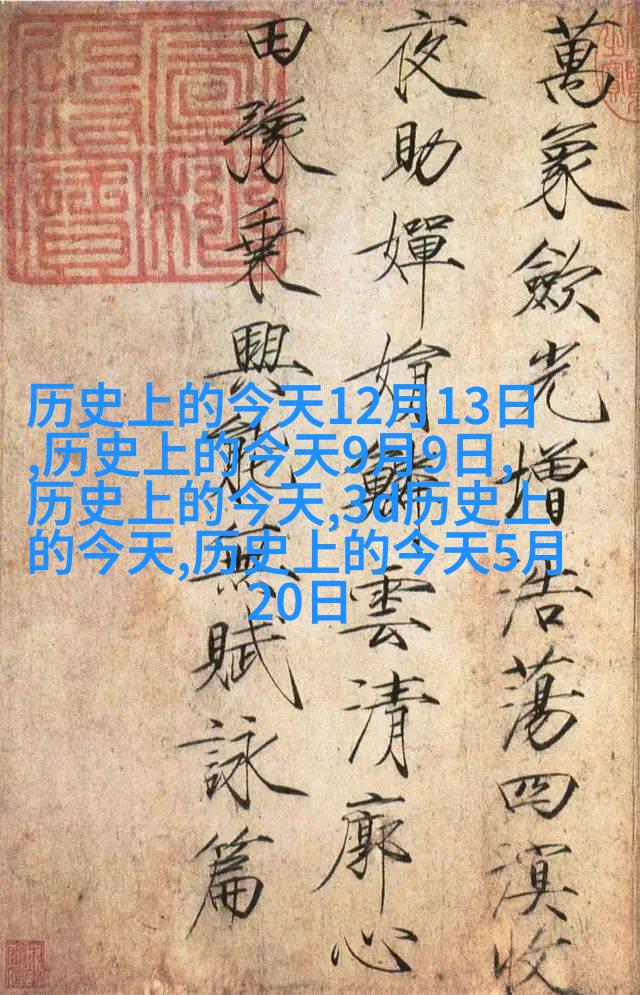 萬象歛光增浩蕩四溟收
夜助嬋娟鱗雲清廓心
田豫乗興能無賦詠篇
历史上的今天12月13日
,历史上的今天9月9日,
历史上的今天,3d历史上
的今天,历史上的今天5月
20日